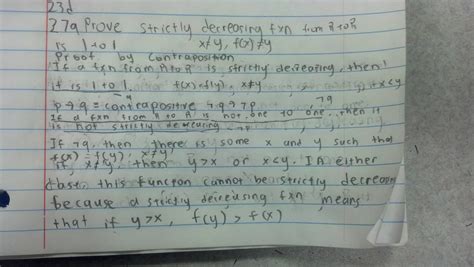 23d
27a Prove strictly decreasing fxn from R to R
is 1 to 1 x≠y, f(x)≠y
Proof by Contraposition
If a fxn from R to R is strictly decreasing, then
it is 1 to 1. f(x)=f(y), x≠y x<y
p→q = contrapositive ¬q→¬p
If a fxn from R to R is not one to one, then it
is not strictly decreasing
If ¬q, then there is some x and y such that
f(x)=f(y), x≠y.
If x≠y, then y>x or x<y. In either
case, this function cannot be strictly decreasing
because a strictly decreasing fxn means
that if y>x, f(y)>f(x)